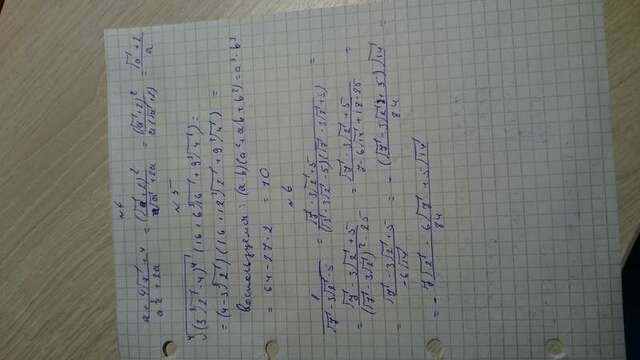 №6
(a + 4√a + 4)/(a√a + 2a) = (√a + 2)²/(a√a + 2a) = (√a + 2)²/(a(√a + 2)) = (√a + 2)/a
№5
⁴√(3∛2 - 4)⁴ (16 + 6∛16 + 9∛4) =
= (4 - 3∛2)(16 + 12∛2 + 9∛4) =
воспользуемся: (a-b)(a²+ab+b²) = a³-b³
= 64 - 27·2 = 10
№6
1/(√7 - 3√2 - 5) = (√7 - 3√2 + 5)/((√7 - 3√2 - 5)(√7 - 3√2 + 5)) =
= (√7 - 3√2 + 5)/((√7 - 3√2)² - 25) = (√7 - 3√2 + 5)/(7 - 6√14 + 18 - 25) =
= (√7 - 3√2 + 5)/(-6√14) = - ((√7 - 3√2 + 5)√14)/84 =
= - (7√2 - 6√7 + 5√14)/84